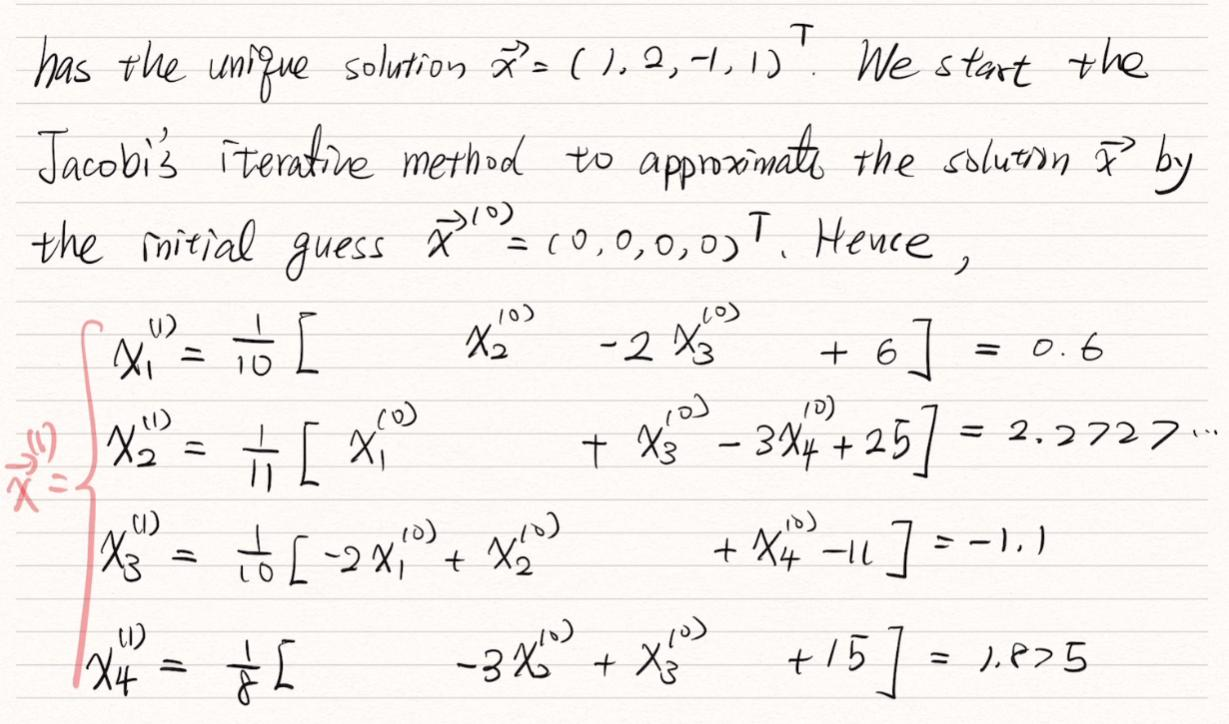 has the unique solution x⃗ = (1, 2, -1, 1)ᵀ. We start the
Jacobi's iterative method to approximate the solution x⃗ by
the initial guess x⃗⁽⁰⁾ = (0, 0, 0, 0)ᵀ. Hence,
x⃗⁽¹⁾ = {
x₁⁽¹⁾ = 1/10 [ x₂⁽⁰⁾ - 2x₃⁽⁰⁾ + 6 ] = 0.6
x₂⁽¹⁾ = 1/11 [ x₁⁽⁰⁾ + x₃⁽⁰⁾ - 3x₄⁽⁰⁾ + 25 ] = 2.2727...
x₃⁽¹⁾ = 1/10 [ -2x₁⁽⁰⁾ + x₂⁽⁰⁾ + x₄⁽⁰⁾ - 11 ] = -1.1
x₄⁽¹⁾ = 1/8 [ -3x₂⁽⁰⁾ + x₃⁽⁰⁾ + 15 ] = 1.875